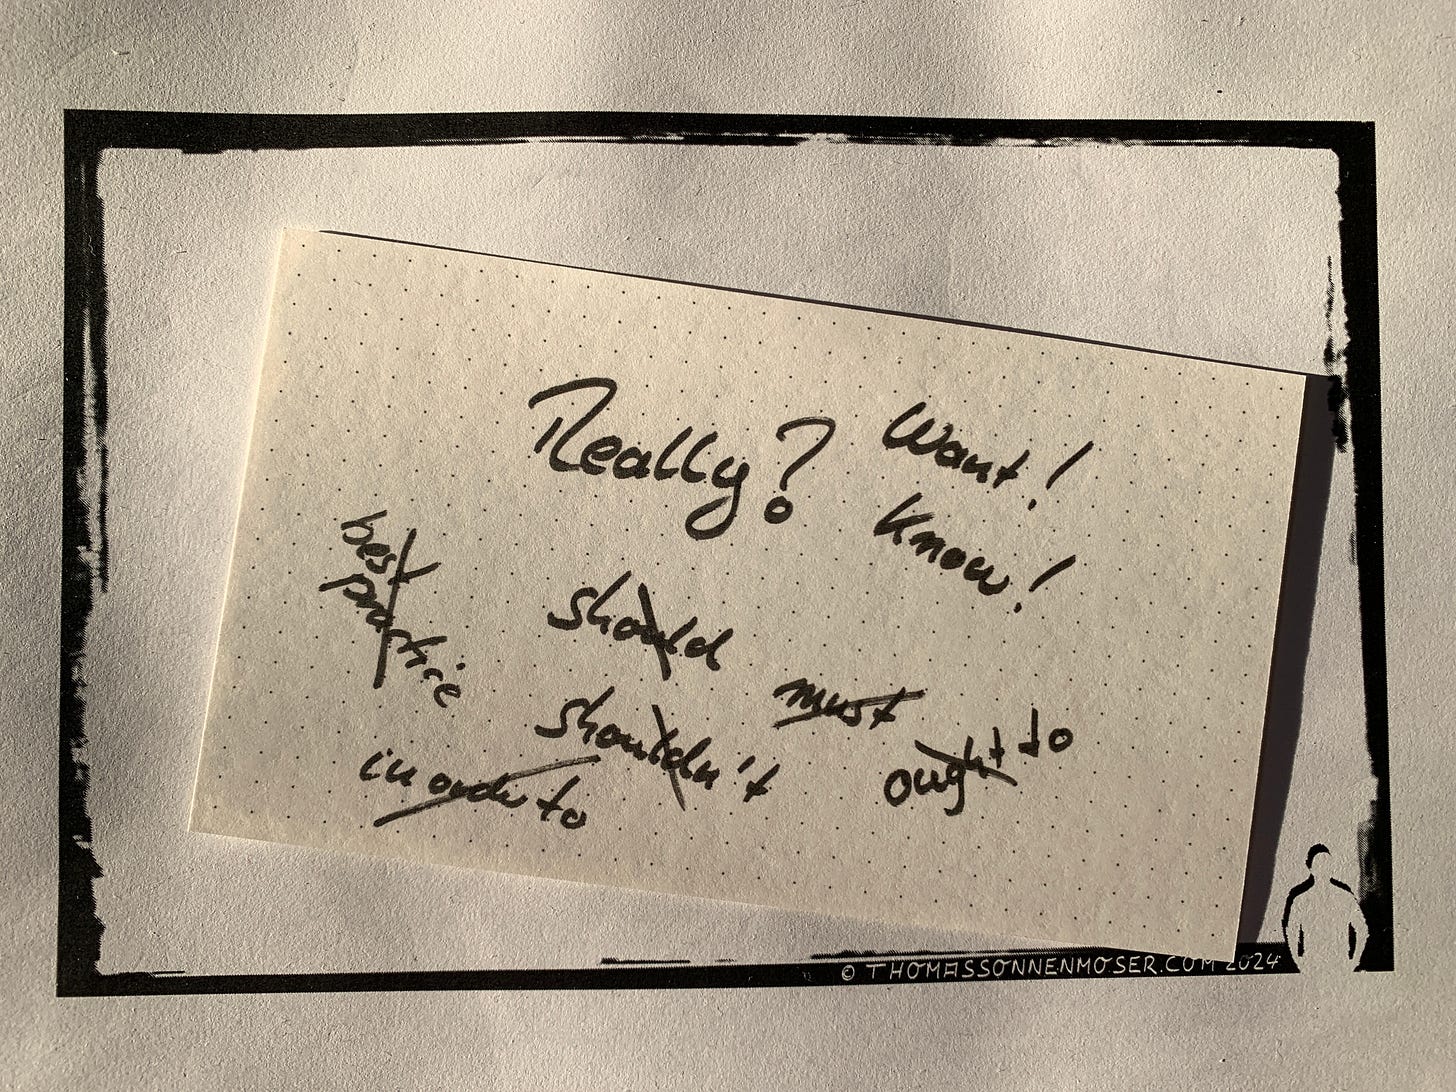 Really?
Want!
Know!
best
practice
should
must
shouldn't
ought to
in order to
© THOMASSONNENMOSER.COM 2024